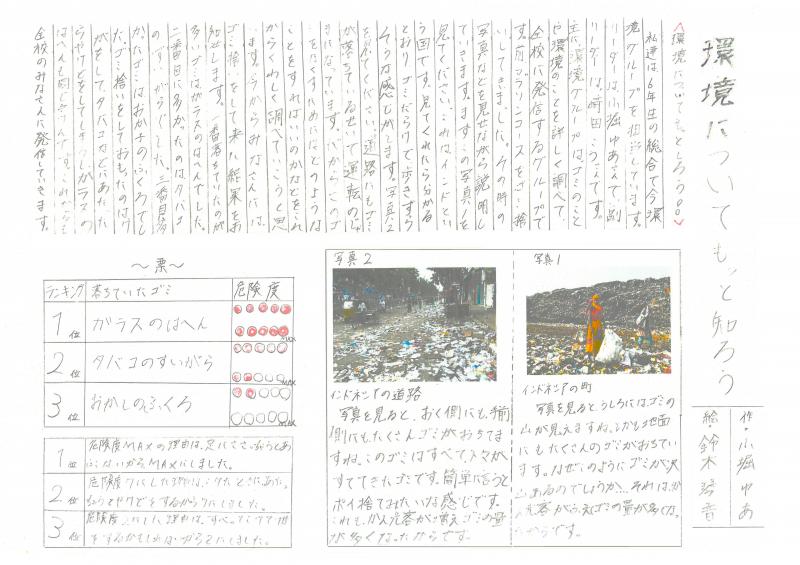 環境についてもっと知ろう
作・小堀ゆあ
絵・鈴木琴音
<環境についてもっとしろう。。>
私達は6年生の総合で今環
境グループを担当しています。
リーダーは、小堀ゆあさで、副
リーダーは、
です。
主に、環境グループはゴミのこと
や環境のことを詳しく調べて、
全校に発信するグループで
す。前、プラリンコースをゴミ捨
いしてきました。その時の
写真などを見せながら説明し
ていきます。まずこの写真1を
見てください。これはインドとい
う国です。見てくれたら分かる
とおりゴミだらけで歩きずら
そうな感じがします。写真2
を見てください。道路にもゴミ
が落ちているせで運転のじゃ
まになっています。だからこのゴ
ミをなくすためにはどのような
ことをすればいいのかなどをこれ
からくわしく調べていこうと思い
ます。今からみなさんには、
ゴミ拾いをして来た結果をお
知せします。一番落ちていたのが
多いゴミはガラスのはへんでした。
二番目に多かったのはタバコ
のすいがらでした。三番目に多
かったゴミはおかしのふくろでし
た。ゴミ拾いをしておもたのは
がをして、タバコなどにあたた
らやけどをしてしまうしガラスの
はへんも同じ
全校のみなさんに発信していきます。
写真1
インドネシアの町
写真を見ると、うしろにはゴミの
山が見えますね。しかも地面
にもたくさんのゴミがおちてい
ます。なぜこのようにゴミが沢
山あるのでしょうか、それは、
客がふえゴミの量が多くな
からです。
写真2
インドネシアの道路
写真を見ると、おく側にも、手前
側にもたくさんゴミがおちてま
すね。このゴミはすべて人々が
すててきたゴミです。簡単に言うと
ポイ捨てみたいな感じです。
これも、かんこう客が増えゴミの量
が多くなったからです。
〜票〜
ランキング 落ちていたゴミ 危険度
1位 ガラスのはへん MAX
2位 タバコのすいがら MAX
3位 おかしのふくろ MAX
1位 危険度MAXの理由は、足にささっちゃうとあ
ぶないからMAXにしました。
2位 危険度7にした理由は、
ちょっとやけどをするから7にしました。
3位 危険度2にした理由は、すべって
をするかもしれないから2にしました。